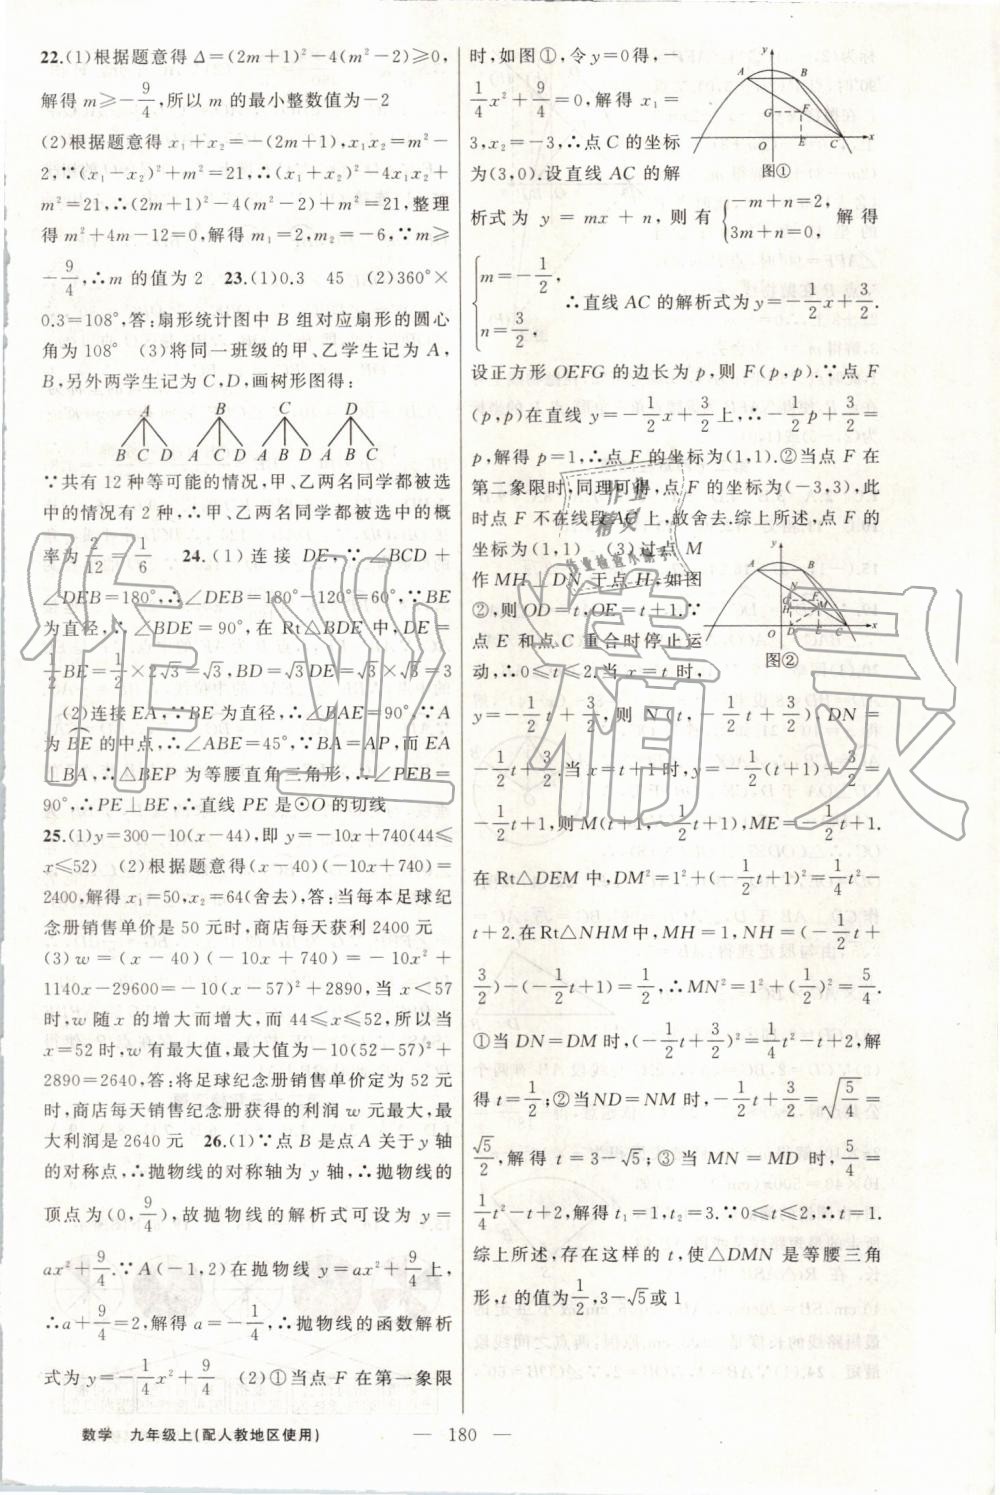 22.(1)根据题意得 Δ=(2m+1)²-4(m²-2)≥0,
解得 m≥-9/4,所以 m 的最小整数值为-2
(2)根据题意得 x₁+x₂=-(2m+1),x₁x₂=m²-
2,∵(x₁-x₂)²+m²=21,∴(x₁+x₂)²-4x₁x₂+
m²=21,∴(2m+1)²-4(m²-2)+m²=21,整理
得 m²+4m-12=0,解得 m₁=2,m₂=-6,∵m≥
-9/4,∴m 的值为 2 23.(1)0.3 45 (2)360°×
0.3=108°,答:扇形统计图中 B 组对应扇形的圆心
角为 108° (3)将同一班级的甲、乙学生记为 A,
B,另外两学生记为 C,D,画树形图得:
A B C D
B C D A C D A B D A B C
∵共有 12 种等可能的情况,甲、乙两名同学都被选
中的情况有 2 种,∴甲、乙两名同学都被选中的概
率为2/12=1/6 24.(1)连接 DE,∵∠BCD+
∠DEB=180°,∴∠DEB=180°-120°=60°,∵BE
为直径,∴∠BDE=90°,在 Rt△BDE 中,DE=
1/2BE=1/2×2√3=√3,BD=√3DE=√3×√3=3
(2)连接 EA,∵BE 为直径,∴∠BAE=90°,∵A
为BE的中点,∴∠ABE=45°,∵BA=AP,而 EA
⊥BA,∴△BEP 为等腰直角三角形,∴∠PEB=
90°,∴PE⊥BE,∴直线 PE 是⊙O 的切线
25.(1)y=300-10(x-44),即 y=-10x+740(44≤
x≤52) (2)根据题意得(x-40)(-10x+740)=
2400,解得 x₁=50,x₂=64(舍去),答:当每本足球纪
念册销售单价是 50 元时,商店每天获利 2400 元
(3)w=(x-40)(-10x+740)=-10x²+
1140x-29600=-10(x-57)²+2890,当 x<57
时,w 随 x 的增大而增大,而 44≤x≤52,所以当
x=52时,w 有最大值,最大值为-10(52-57)²+
2890=2640,答:将足球纪念册销售单价定为 52 元
时,商店每天销售纪念册获得的利润 w 元最大,最
大利润是 2640 元 26.(1)∵点 B 是点 A 关于 y 轴
的对称点,∴抛物线的对称轴为 y 轴,∴抛物线的
顶点为(0,9/4),故抛物线的解析式可设为 y=
ax²+9/4.∵A(-1,2)在抛物线 y=ax²+9/4上,
∴a+9/4=2,解得 a=-1/4,∴抛物线的函数解析
式为 y=-1/4x²+9/4 (2)①当点 F 在第一象限
时,如图①,令 y=0得,-
1/4x²+9/4=0,解得 x₁=
3,x₂=-3,∴点 C 的坐标
为(3,0).设直线 AC 的解
析式为 y=mx+n,则有{-m+n=2, 3m+n=0,解得
{m=-1/2, n=3/2, ∴直线 AC 的解析式为 y=-1/2x+3/2.
设正方形 OEFG 的边长为 p,则 F(p,p).∵点 F
(p,p)在直线 y=-1/2x+3/2上,∴-1/2p+3/2=
p,解得 p=1,∴点 F 的坐标为(1,1).②当点 F 在
第二象限时,同理可得,点 F 的坐标为(-3,3),此
时点 F 不在线段 AC 上,故舍去.综上所述,点 F 的
坐标为(1,1) (3)过点 M
作 MH⊥DN 于点 H,如图
②,则 OD=t,OE=t+1.∵
点 E 和点 C 重合时停止运
动,∴0≤t≤2.当 x=t 时,
y=-1/2t+3/2,则 N(t,-1/2t+3/2),DN=
-1/2t+3/2.当 x=t+1时,y=-1/2(t+1)+3/2=
-1/2t+1,则M(t+1,-1/2t+1),ME=-1/2t+1.
在 Rt△DEM 中,DM²=1²+(-1/2t+1)²=1/4t²-
t+2.在Rt△NHM中,MH=1,NH=(-1/2t+
3/2)-(-1/2t+1)=1/2,∴MN²=1²+(1/2)²=5/4.
①当 DN=DM 时,(-1/2t+3/2)²=1/4t²-t+2,解
得 t=1/2;②当ND=NM 时,-1/2t+3/2=√(5/4)=
√5/2,解得 t=3-√5;③当 MN=MD 时,5/4=
1/4t²-t+2,解得 t₁=1,t₂=3.∵0≤t≤2,∴t=1.
综上所述,存在这样的 t,使△DMN 是等腰三角
形,t 的值为1/2,3-√5或 1
图①
图②
数学 九年级上(配人教地区使用)
— 180 —
作业精灵
作业
精灵
作业检查小助手